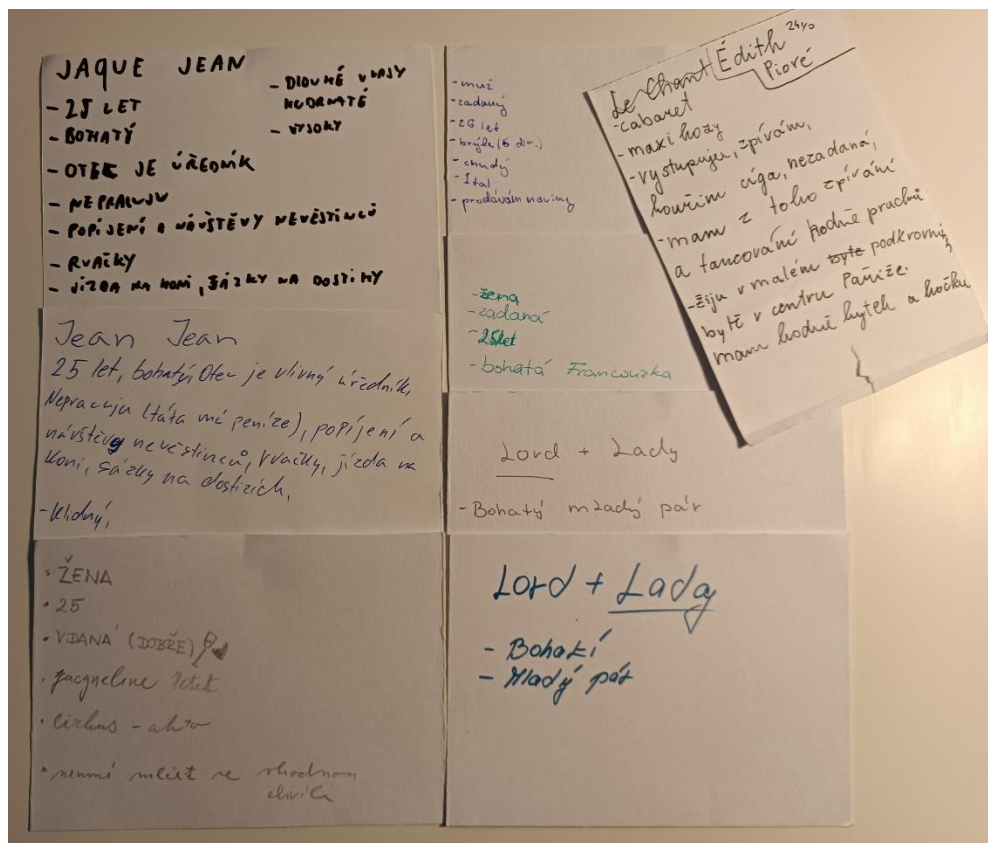 JAQUE JEAN
- 25 LET
- BOHATÝ
- OTEC JE ÚŘEDNÍK
- NEPRACUJU
- POPÍJENÍ A NÁVŠTĚVY NEVĚSTINCŮ
- RVAČKY
- JÍZDA NA KONI, SÁZKY NA DOSTIHY
- DLOUHÉ VLASY
KUDRNATÉ
- VYSOKÝ
Jean Jean
25 let, bohatý, Otec je vlivný úředník,
Nepracuju (táta má peníze), popíjení a
návštěvy nevěstinců, rvačky, jízda na
koni, sázky na dostizích,
- klidný,
• ŽENA
• 25
• VDANÁ (DOBŘE)
• Jacqueline
• Cirkus -
• neumí mlčet ve vhodnou
chvíli
- muž
- zadaný
- 26 let
- brýle (6 dio.)
- chudý
- Ital
- prodávám noviny
- žena
- zadaná
- 25let
- bohatá Francouzka
Lord + Lady
- Bohatý mladý pár
Lord + Lady
- Bohatí
- Mladý pár
24 y/o
Le Chant Édith
Piové
- cabaret
- maxi kozy
- vystupuju, zpívám,
kouřím cíga, nezadaná,
- mam z toho zpívání
a tancování hodně prachů
- žiju v malém podkrovním
bytě v centru Paříže.
mam hodně kytek a kočku